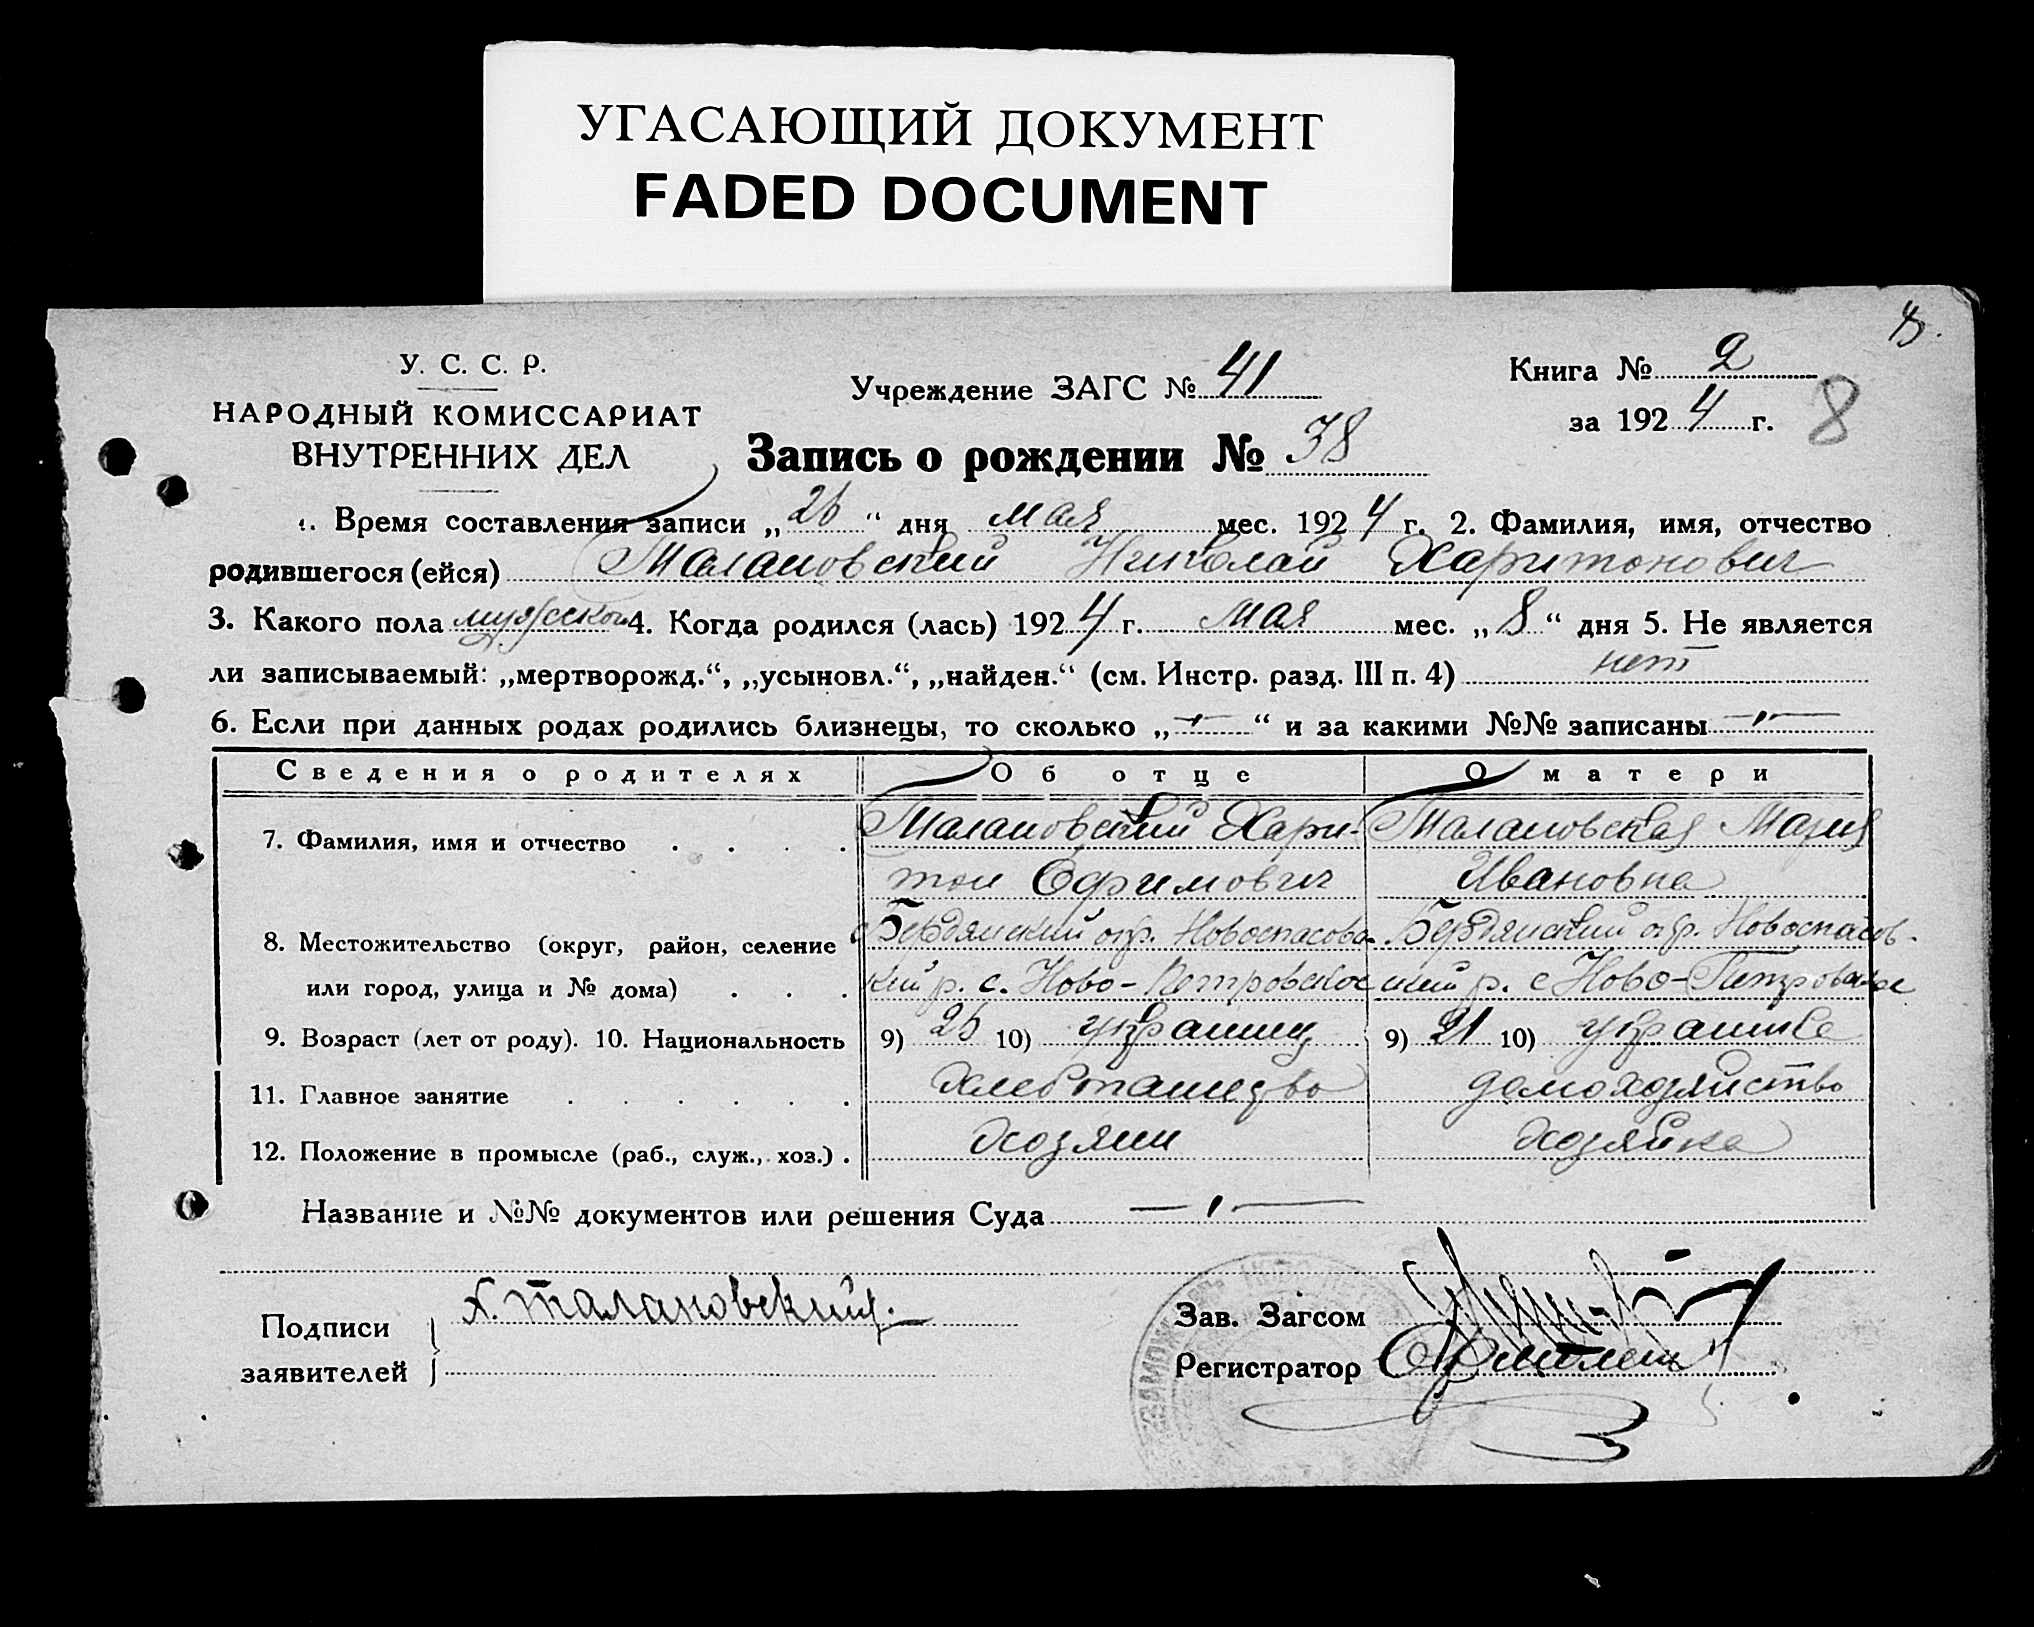 УГАСАЮЩИЙ ДОКУМЕНТ
FADED DOCUMENT
У. С. С. Р.
НАРОДНЫЙ КОМИССАРИАТ
ВНУТРЕННИХ ДЕЛ
Учреждение ЗАГС № 41
Книга № 2
за 1924 г. 8
Запись о рождении № 38
1. Время составления записи „26“ дня мая мес. 1924 г. 2. Фамилия, имя, отчество
родившегося (ейся) Талановский Николай Харитонович
3. Какого пола мужского 4. Когда родился (лась) 1924 г. мая мес. „8“ дня 5. Не является
ли записываемый: „мертворожд.“, „усыновл.“, „найден.“ (см. Инстр. разд. III п. 4) нет
6. Если при данных родах родились близнецы, то сколько „—“ и за какими №№ записаны —
Сведения о родителях Об отце О матери
7. Фамилия, имя и отчество Талановский Хари- Талановская Мария
тон Ефимович Ивановна
8. Местожительство (округ, район, селение Бердянский окр. Новоспасов- Бердянский окр. Новоспасов-
или город, улица и № дома) кий р. с. Ново-Петровское ский р. с Ново-Петровское
9. Возраст (лет от роду). 10. Национальность 9) 26 10) украинец 9) 21 10) украинка
11. Главное занятие хлебопашество домохозяйство
12. Положение в промысле (раб., служ., хоз.) хозяин хозяйка
Название и №№ документов или решения Суда —
Подписи Х. Талановский
заявителей
Зав. Загсом
Регистратор